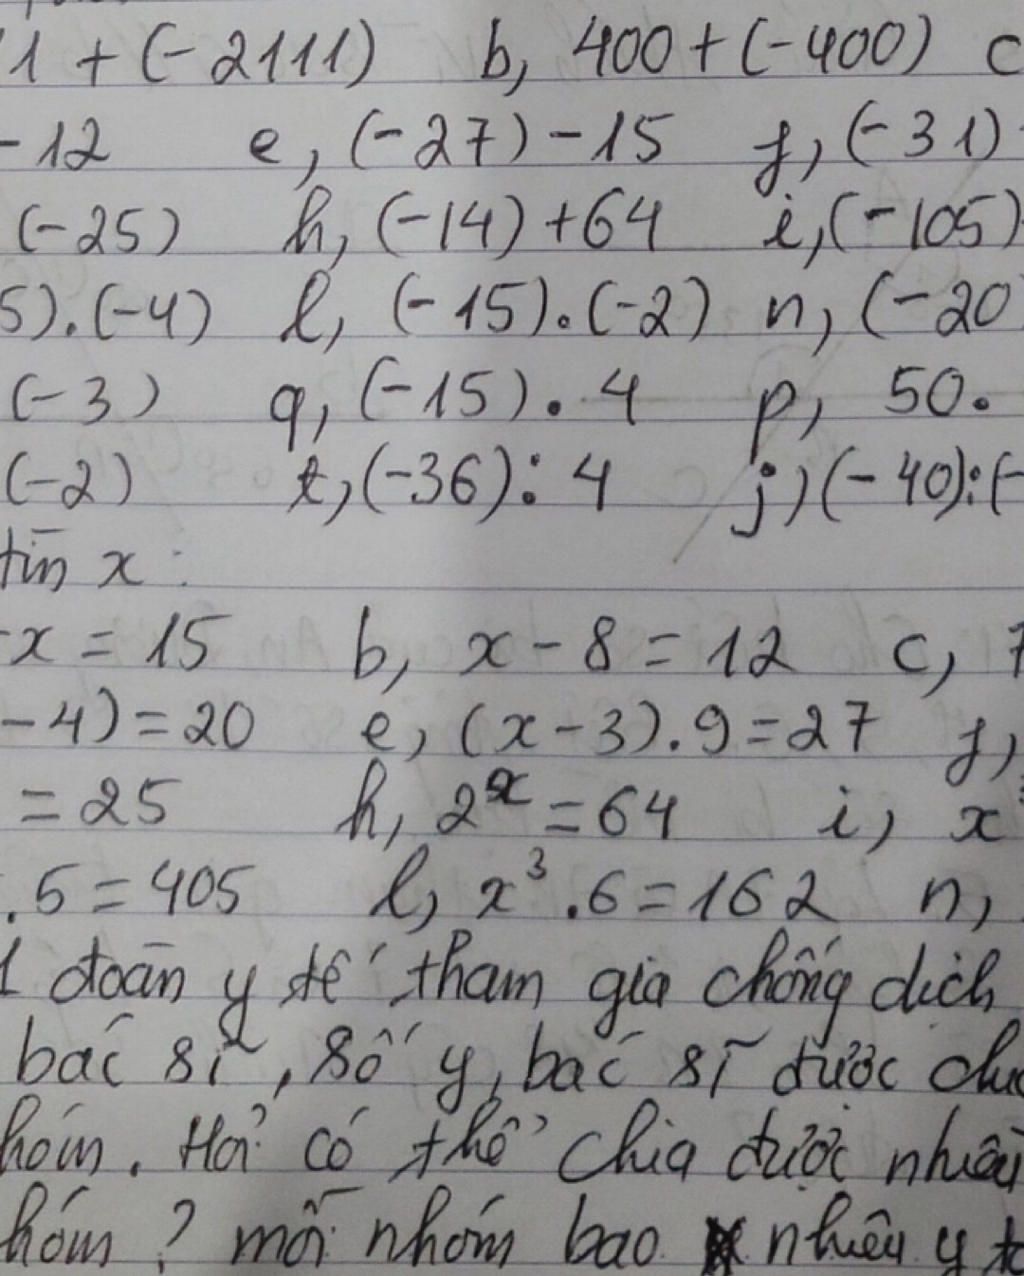 1 + (-2111) b, 400 + (-400) c
- 12 e, (-27) - 15 f, (-31)
(-25) h, (-14) + 64 i, (-105)
5).(-4) l, (-15).(-2) n, (-20
(-3) q, (-15). 4 p, 50.
(-2) t, (-36): 4 j) (-40):(-
tìm x:
-x = 15 b, x - 8 = 12 c, 7
- 4) = 20 e, (x - 3).9 = 27 f,
= 25 h, 2^x = 64 i, x
. 5 = 405 l, x³.6 = 162 n,
1 đoàn y tế tham gia chống dịch
bác sĩ, số y, bác sĩ được
hóm. Hỏi có thể chia được nhiêu
hóm? mỗi nhóm bao nhiêu y